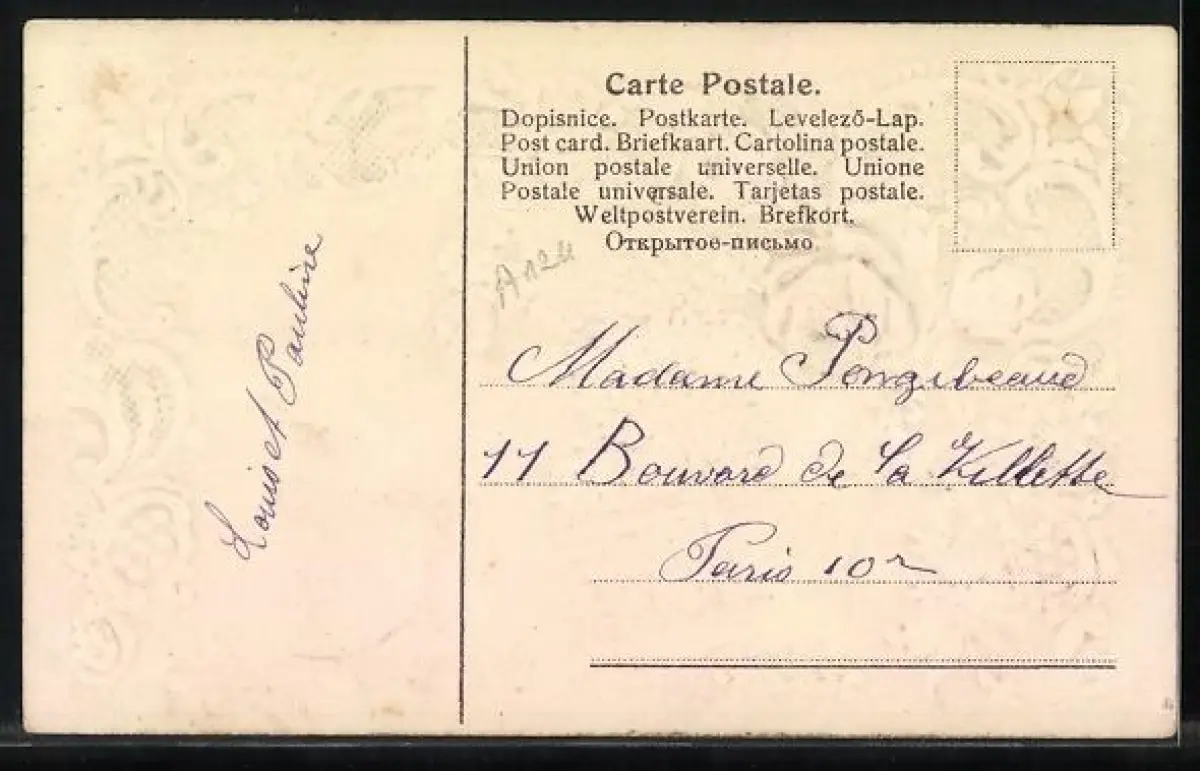 Carte Postale.
Dopisnice. Postkarte. Levelező-Lap.
Post card. Briefkaart. Cartolina postale.
Union postale universelle. Unione
Postale universale. Tarjetas postale.
Weltpostverein. Brefkort.
Открытое-письмо
A 124
Madame Pongibeaud
11 Bouvard de la Villette
Paris 10e
Louis et Pauline